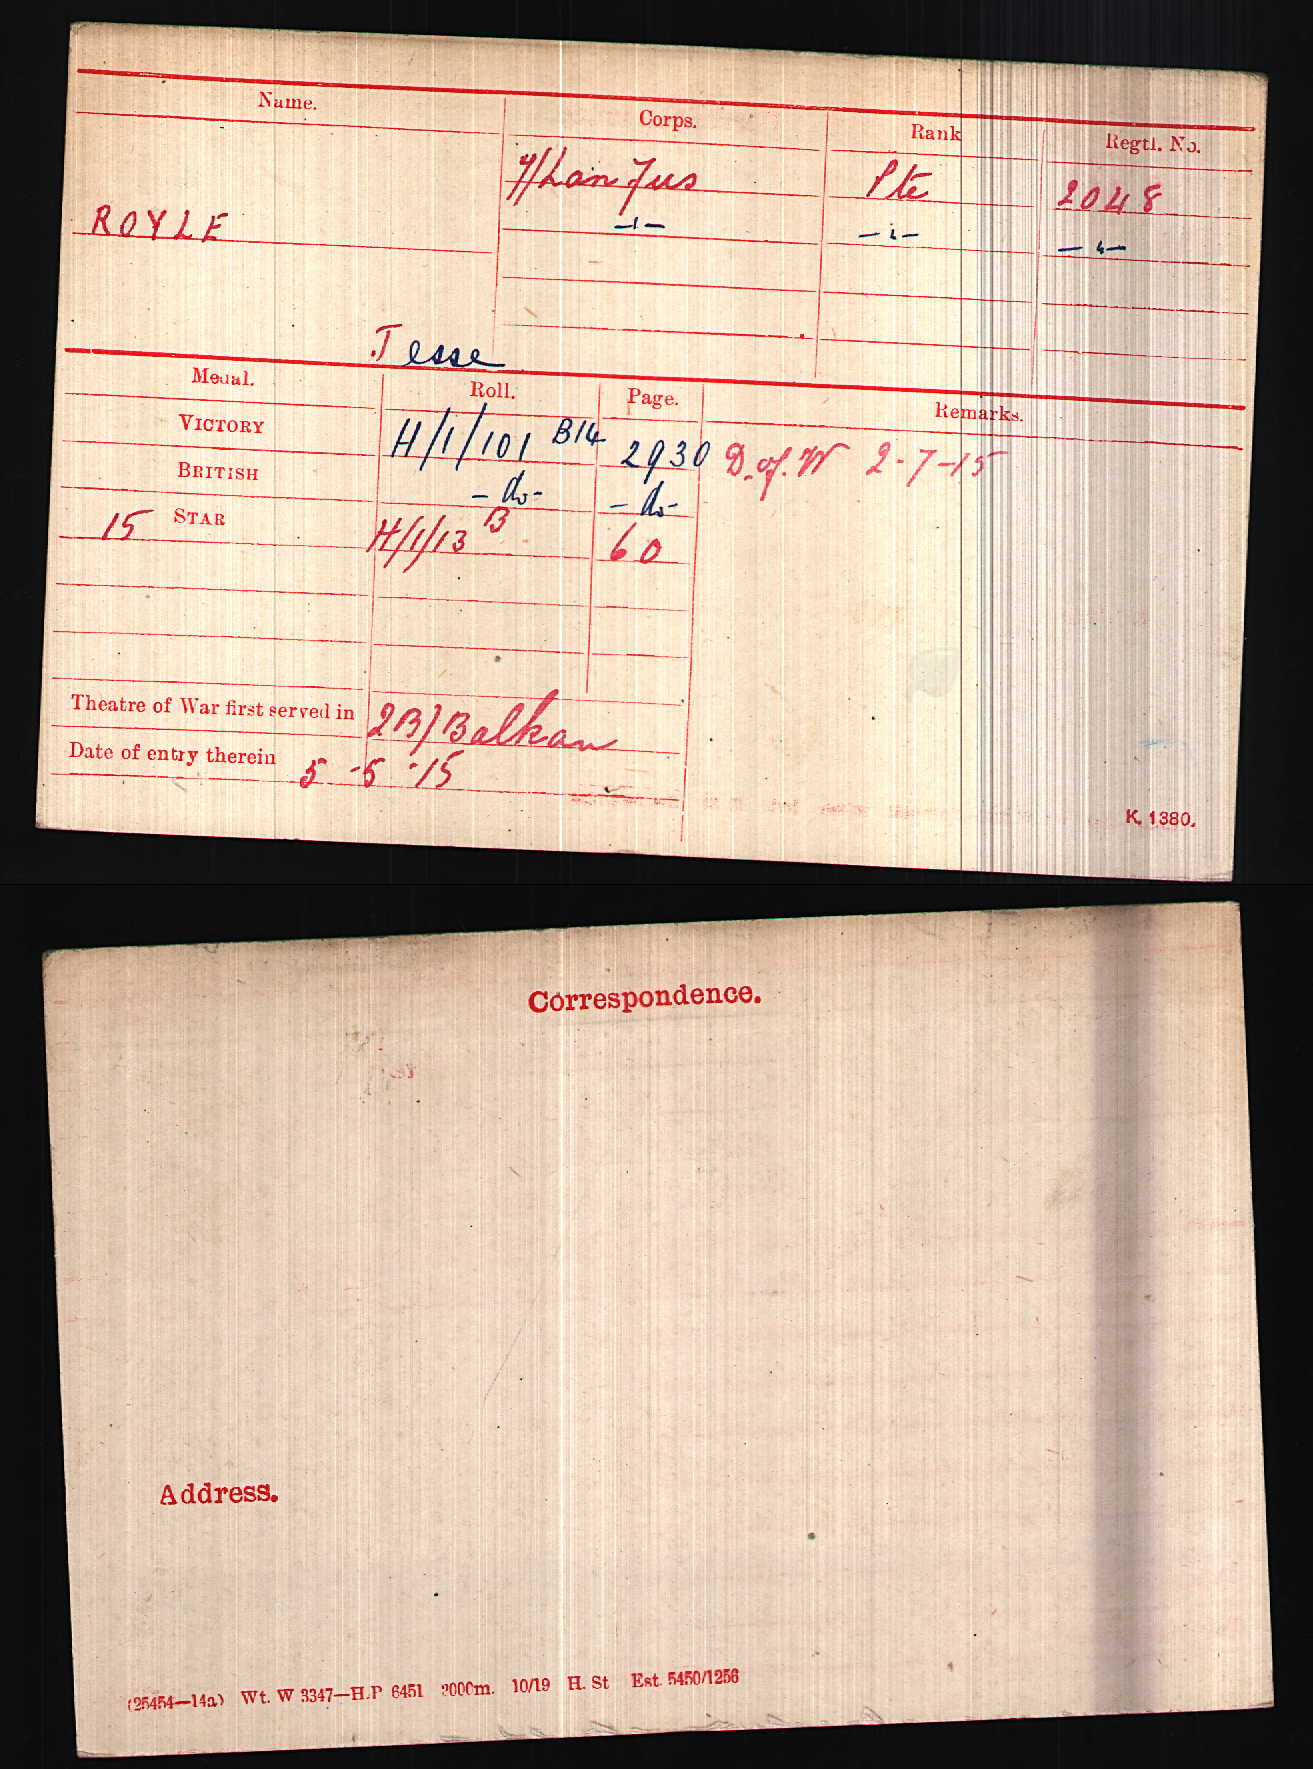 Name. Corps. Rank Regtl. No.
7/Lan Fus Pte 2048
ROYLE —"— —"— —"—
Jesse
Medal. Roll. Page. Remarks.
VICTORY H/1/101 B14 2930 D. of. W 2-7-15
BRITISH -do- -do-
15 STAR H/1/13 B 60
Theatre of War first served in 2B) Balkan
Date of entry therein 5-5-15
K. 1380.
Correspondence.
Address.
(25454—14a) Wt. W 3347—H.P 6451 2000m. 10/19 H. St Est. 5450/1256